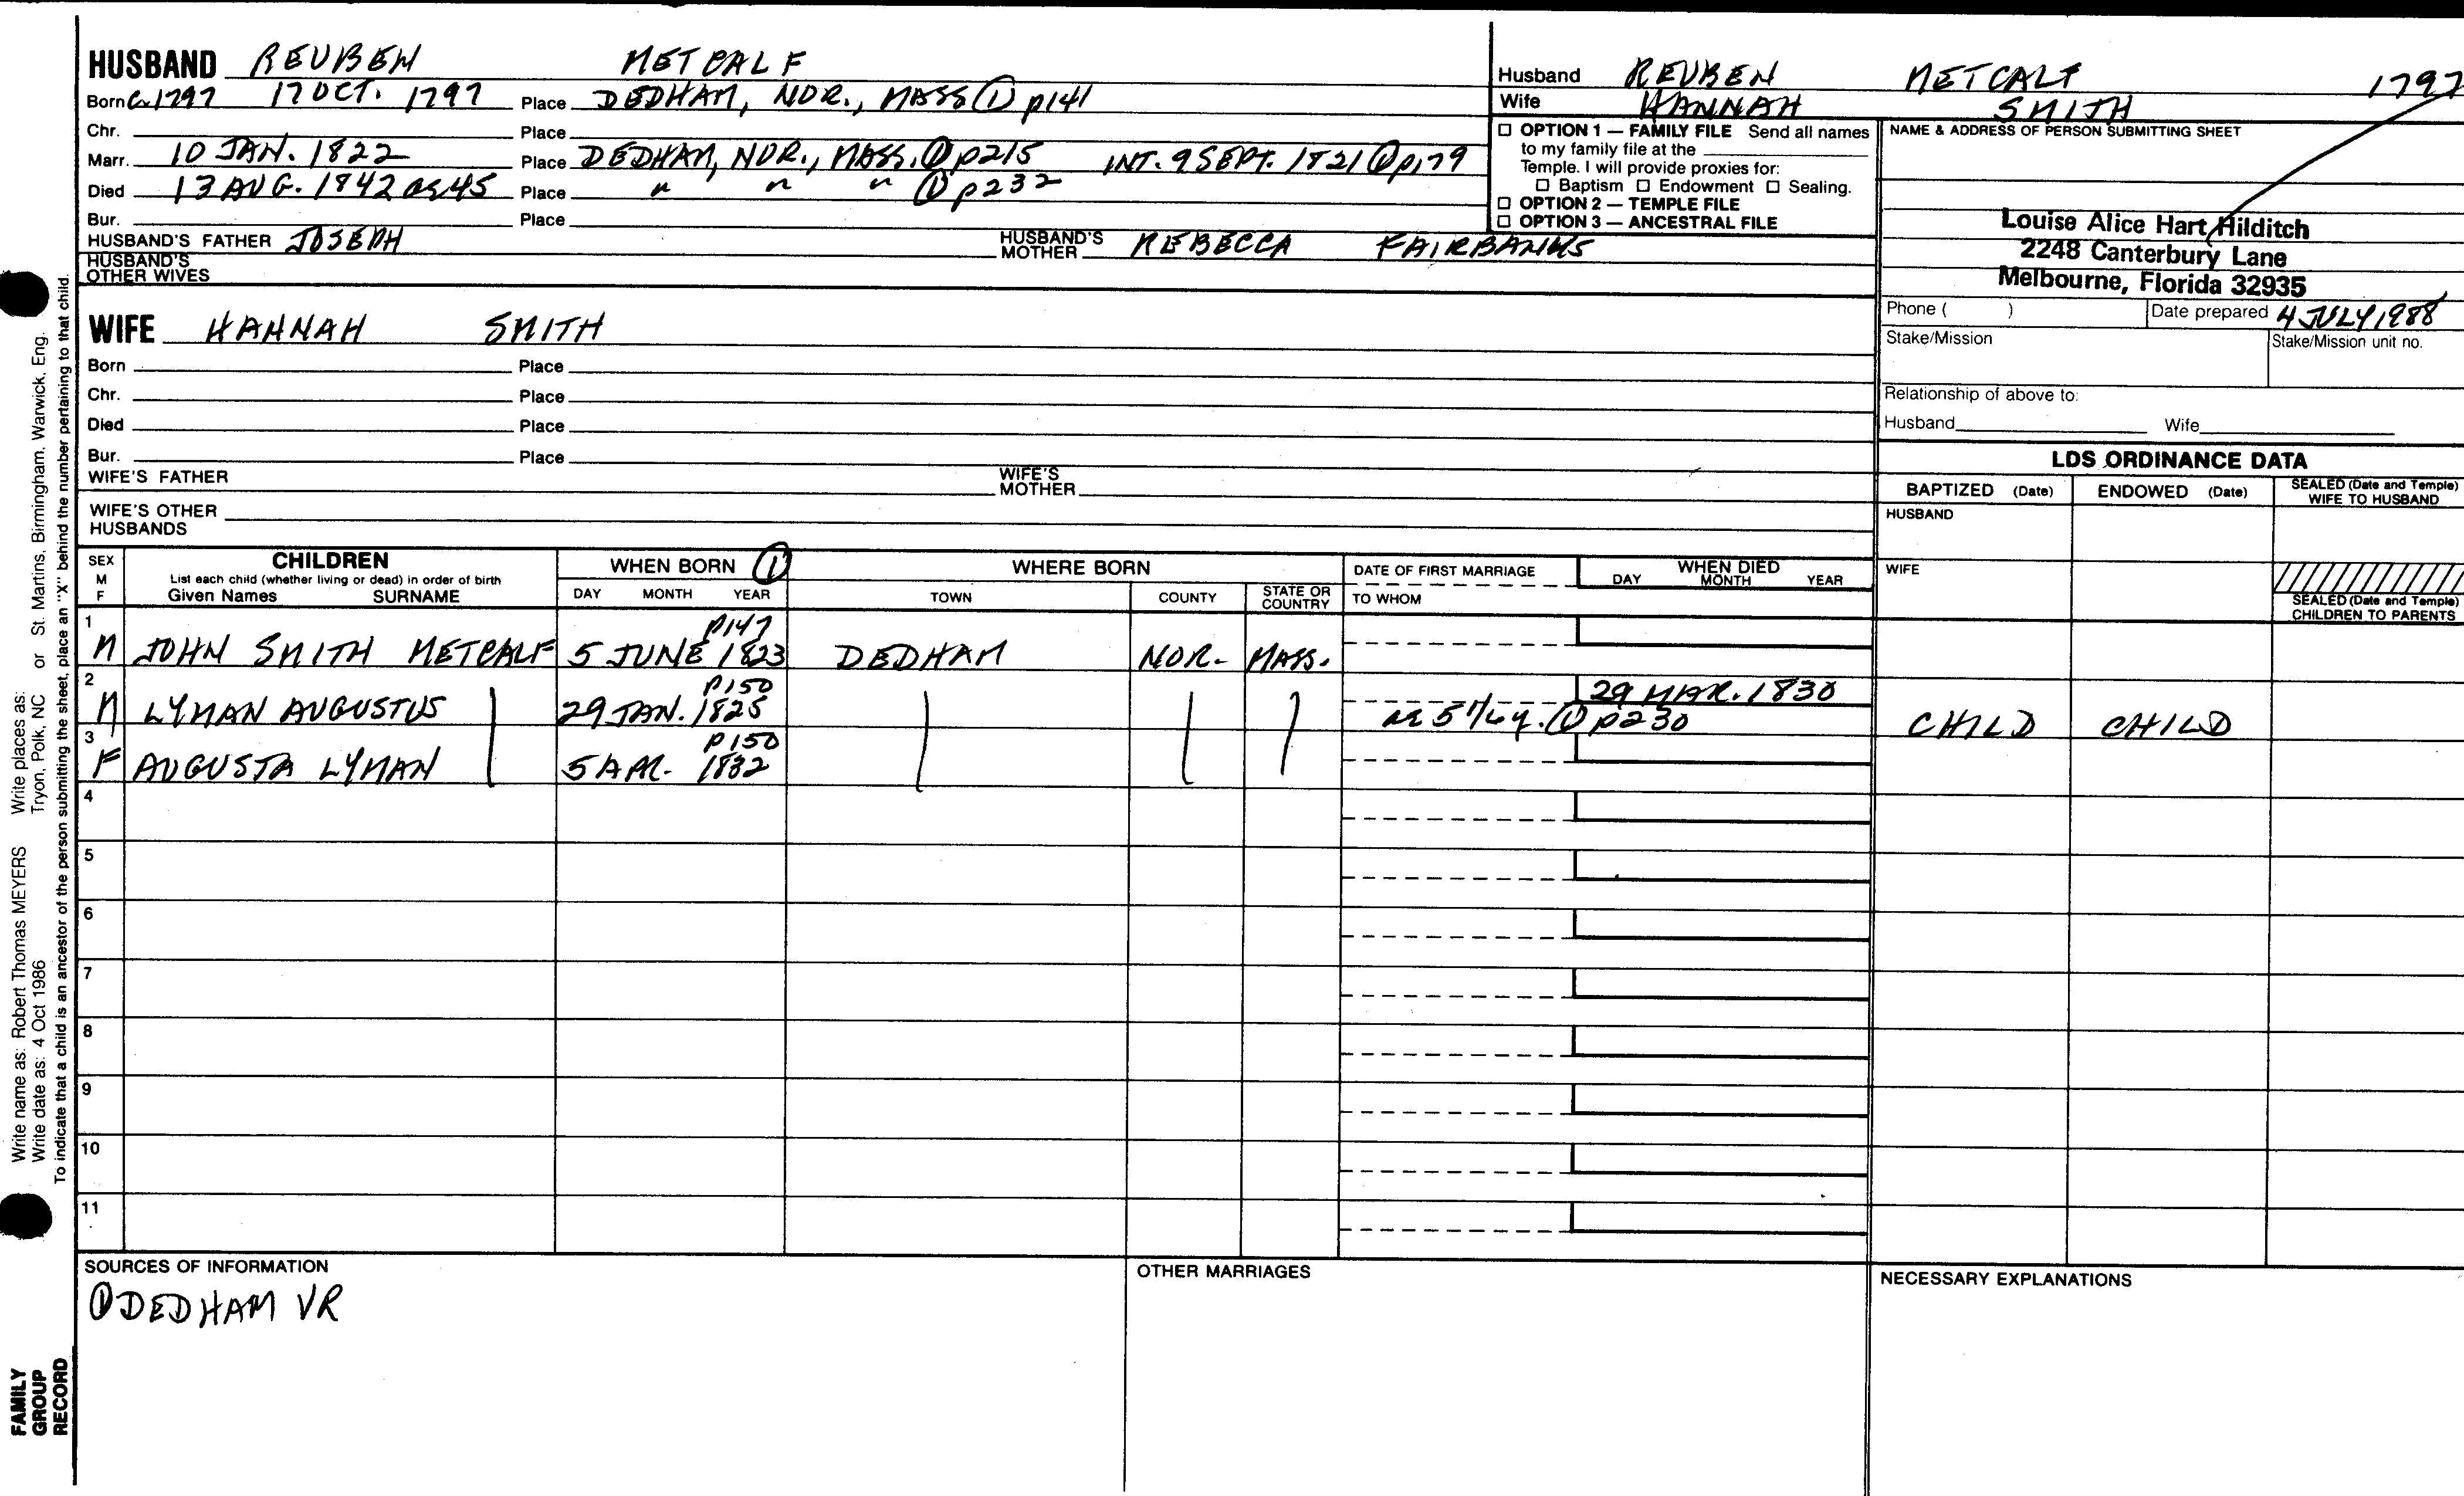 HUSBAND REUBEN METCALF
Born Ca 1797 17 OCT. 1797 Place DEDHAM, NOR., MASS ① p141
Chr. Place
Marr. 10 JAN. 1822 Place DEDHAM, NOR., MASS. ① p215 INT. 9 SEPT. 1821 ① p179
Died 13 AUG. 1842 ae 45 Place " " " ① p232
Bur. Place
HUSBAND'S FATHER JOSEPH HUSBAND'S MOTHER REBECCA FAIRBANKS
HUSBAND'S OTHER WIVES
WIFE HANNAH SMITH
Born Place
Chr. Place
Died Place
Bur. Place
WIFE'S FATHER WIFE'S MOTHER
WIFE'S OTHER HUSBANDS
Husband REUBEN METCALF 1797
Wife HANNAH SMITH
☐ OPTION 1 — FAMILY FILE Send all names
to my family file at the
Temple. I will provide proxies for:
☐ Baptism ☐ Endowment ☐ Sealing.
☐ OPTION 2 — TEMPLE FILE
☐ OPTION 3 — ANCESTRAL FILE
NAME & ADDRESS OF PERSON SUBMITTING SHEET
Louise Alice Hart Hilditch
2248 Canterbury Lane
Melbourne, Florida 32935
Phone ( ) Date prepared 4 JULY 1988
Stake/Mission Stake/Mission unit no.
Relationship of above to:
Husband Wife
LDS ORDINANCE DATA
BAPTIZED (Date) ENDOWED (Date) SEALED (Date and Temple) WIFE TO HUSBAND
HUSBAND
WIFE
SEALED (Date and Temple) CHILDREN TO PARENTS
SEX M F CHILDREN WHEN BORN ① WHERE BORN DATE OF FIRST MARRIAGE WHEN DIED
List each child (whether living or dead) in order of birth
Given Names SURNAME DAY MONTH YEAR TOWN COUNTY STATE OR COUNTRY TO WHOM DAY MONTH YEAR
1 p147
M JOHN SMITH METCALF 5 JUNE 1823 DEDHAM NOR. MASS.
2 p150 29 MAR. 1830
M LYMAN AUGUSTUS 29 JAN. 1825 ae 5 1/6 y. ① p230 CHILD CHILD
3 p150
F AUGUSTA LYMAN 5 MAR. 1832
4
5
6
7
8
9
10
11
SOURCES OF INFORMATION OTHER MARRIAGES NECESSARY EXPLANATIONS
① DEDHAM VR
FAMILY GROUP RECORD
Write name as: Robert Thomas MEYERS Write places as:
Write date as: 4 Oct 1986 Tryon, Polk, NC or St. Martins, Birmingham, Warwick, Eng.
To indicate that a child is an ancestor of the person submitting the sheet, place an "X" behind the number pertaining to that child.